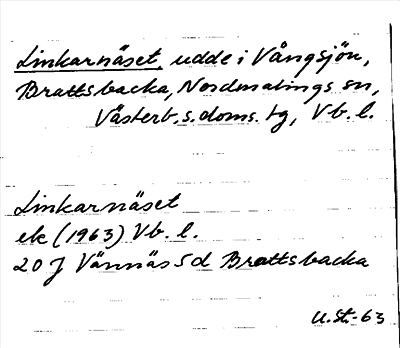 Linkarnäset, udde i Vångsjön,
Brattsbacka, Nordmalings sn,
Västerb. s. doms. tg, Vb. l.
Linkarnäset
ek (1963) Vb. l.
20 J Vännäs Sd Brattsbacka
U.St.-63